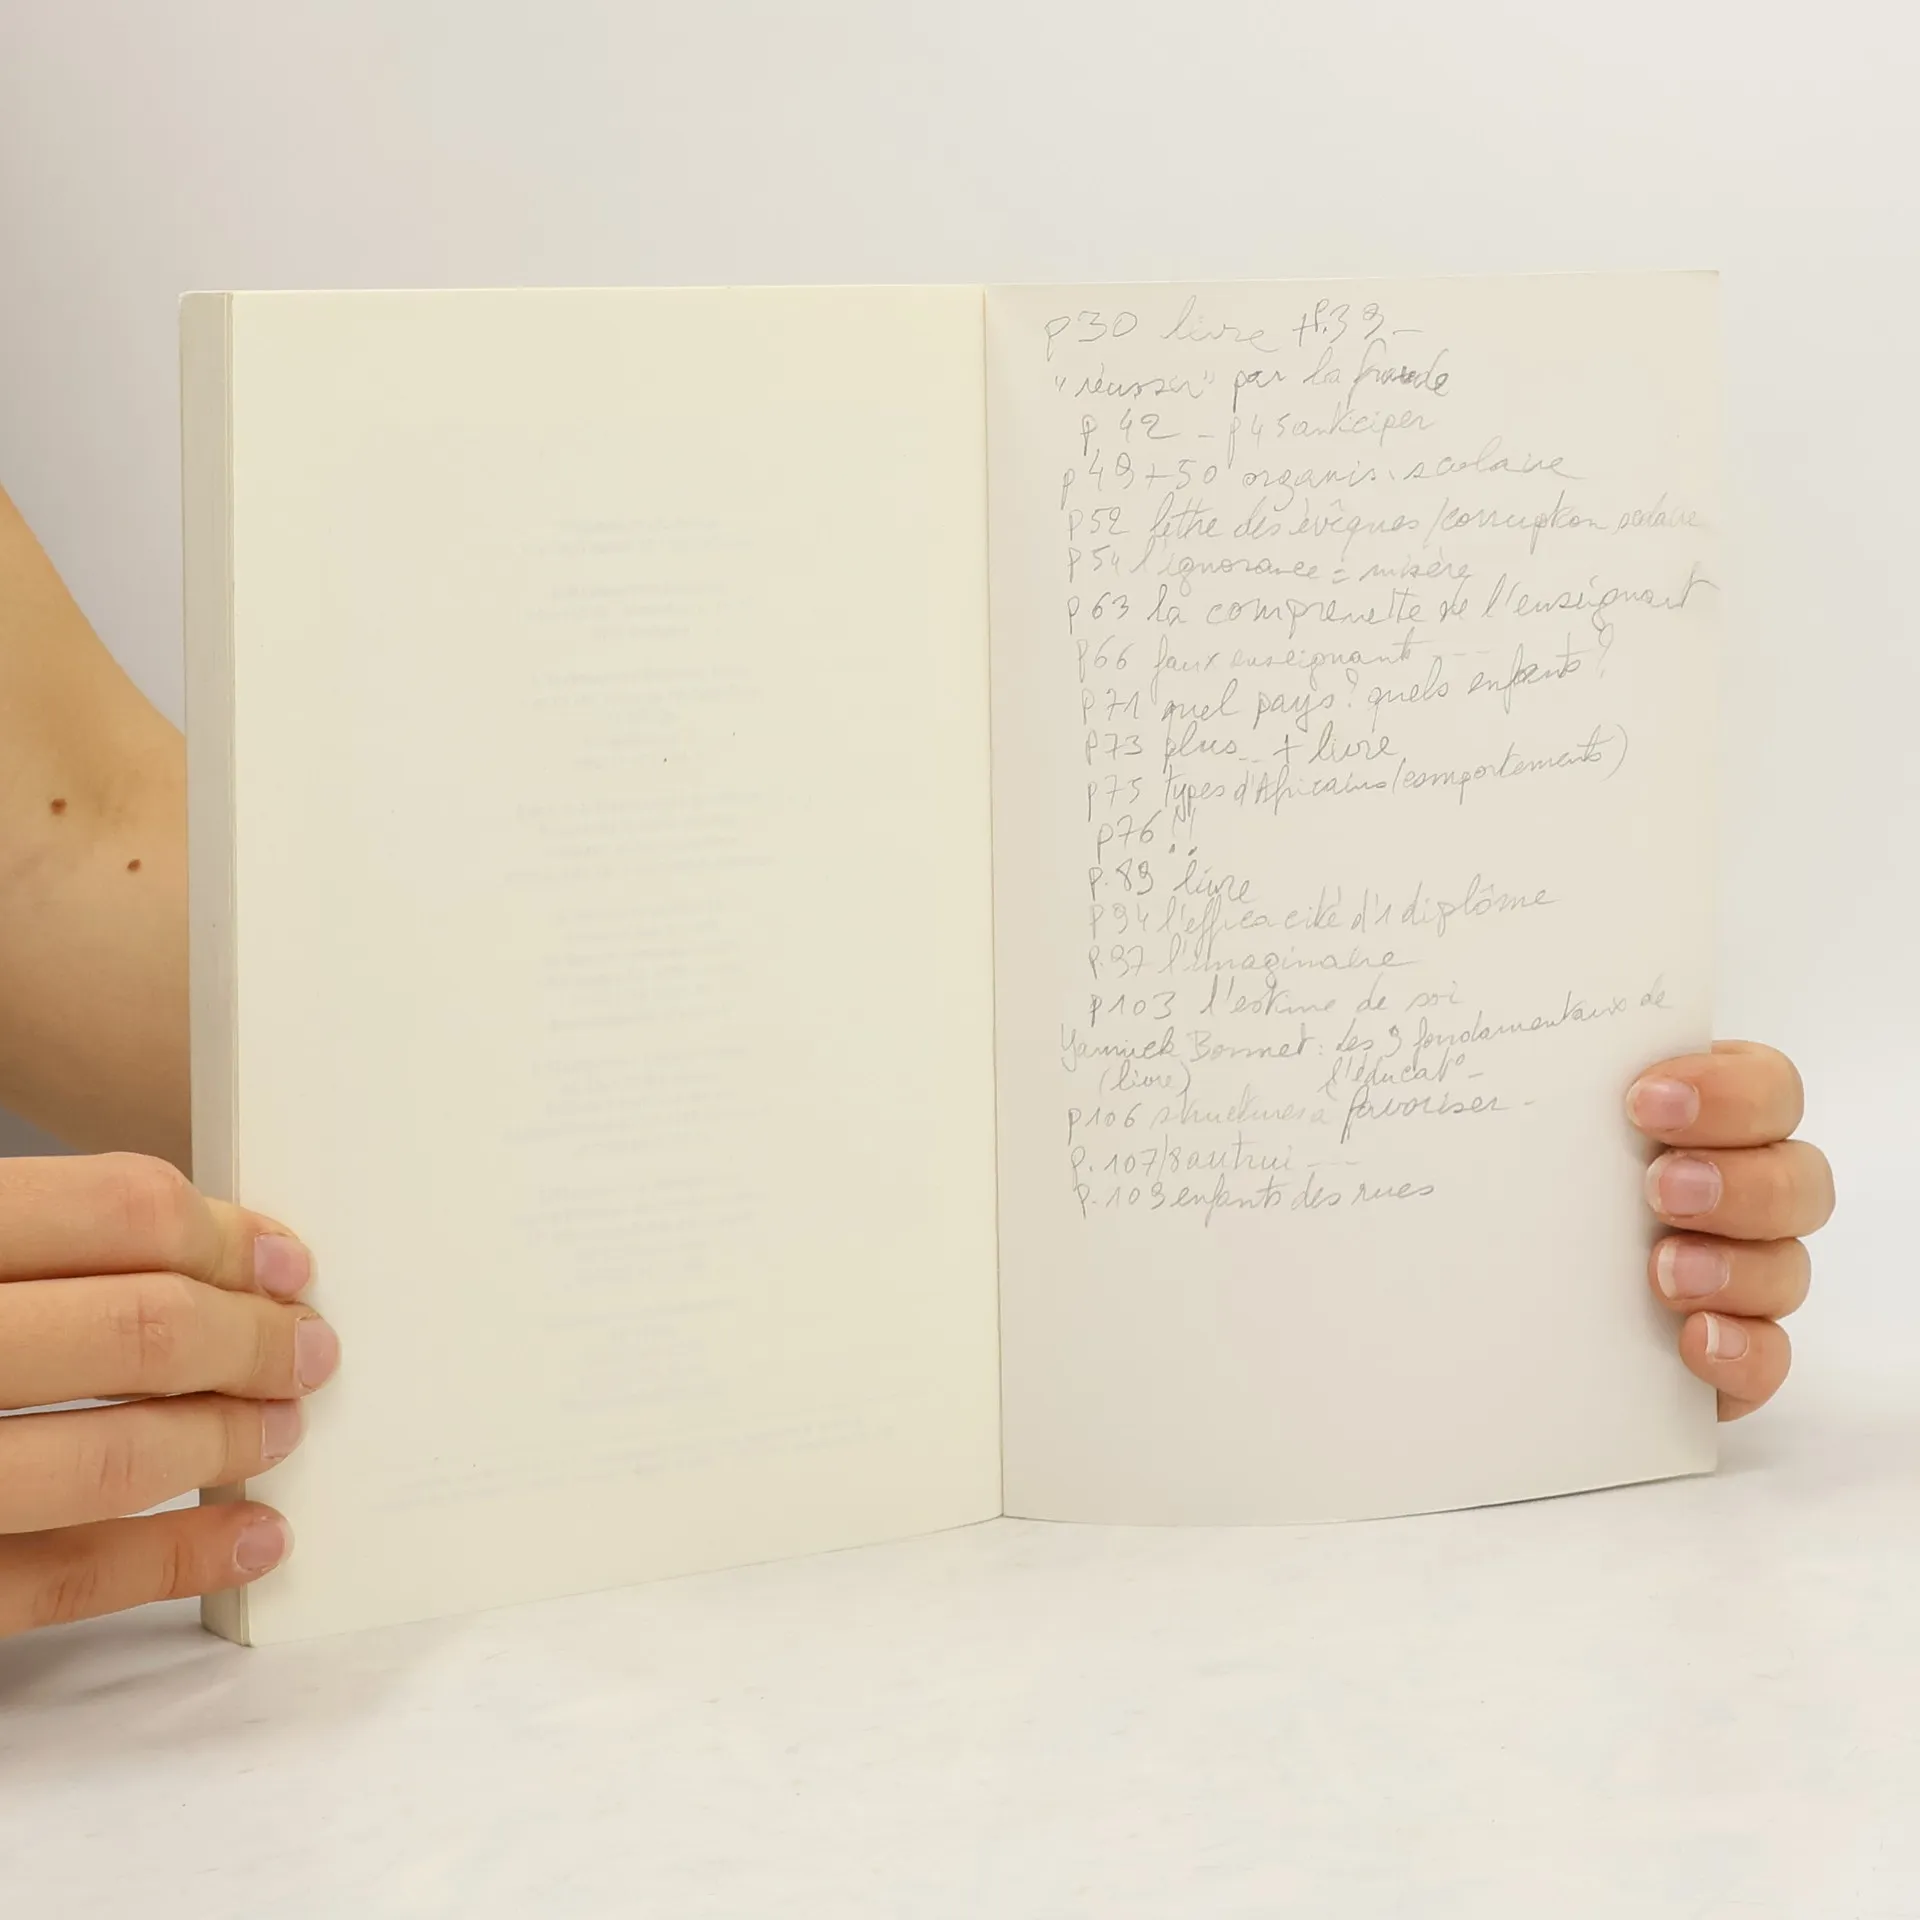 p30 livre + p.39 -
"réussir" par la fraude
p 42 - p45 anticiper
p49+50 organis. scolaire
p52 lettre des évêques/corruption scolaire
p54 l'ignorance = misère
p63 la comprenette de l'enseignant
p66 faux enseignants ---
p71 quel pays? quels enfants?
p73 plus... + livre
p75 types d'Africains (comportements)
p76 !!
p.89 livre
p94 l'efficacité d'1 diplôme
p.97 l'imaginaire
p103 l'estime de soi
Yannick Bonnet: les 9 fondamentaux de
(livre) l'éducat° -
p106 structures à favoriser -
p.107/8 autrui ---
p.109 enfants des rues